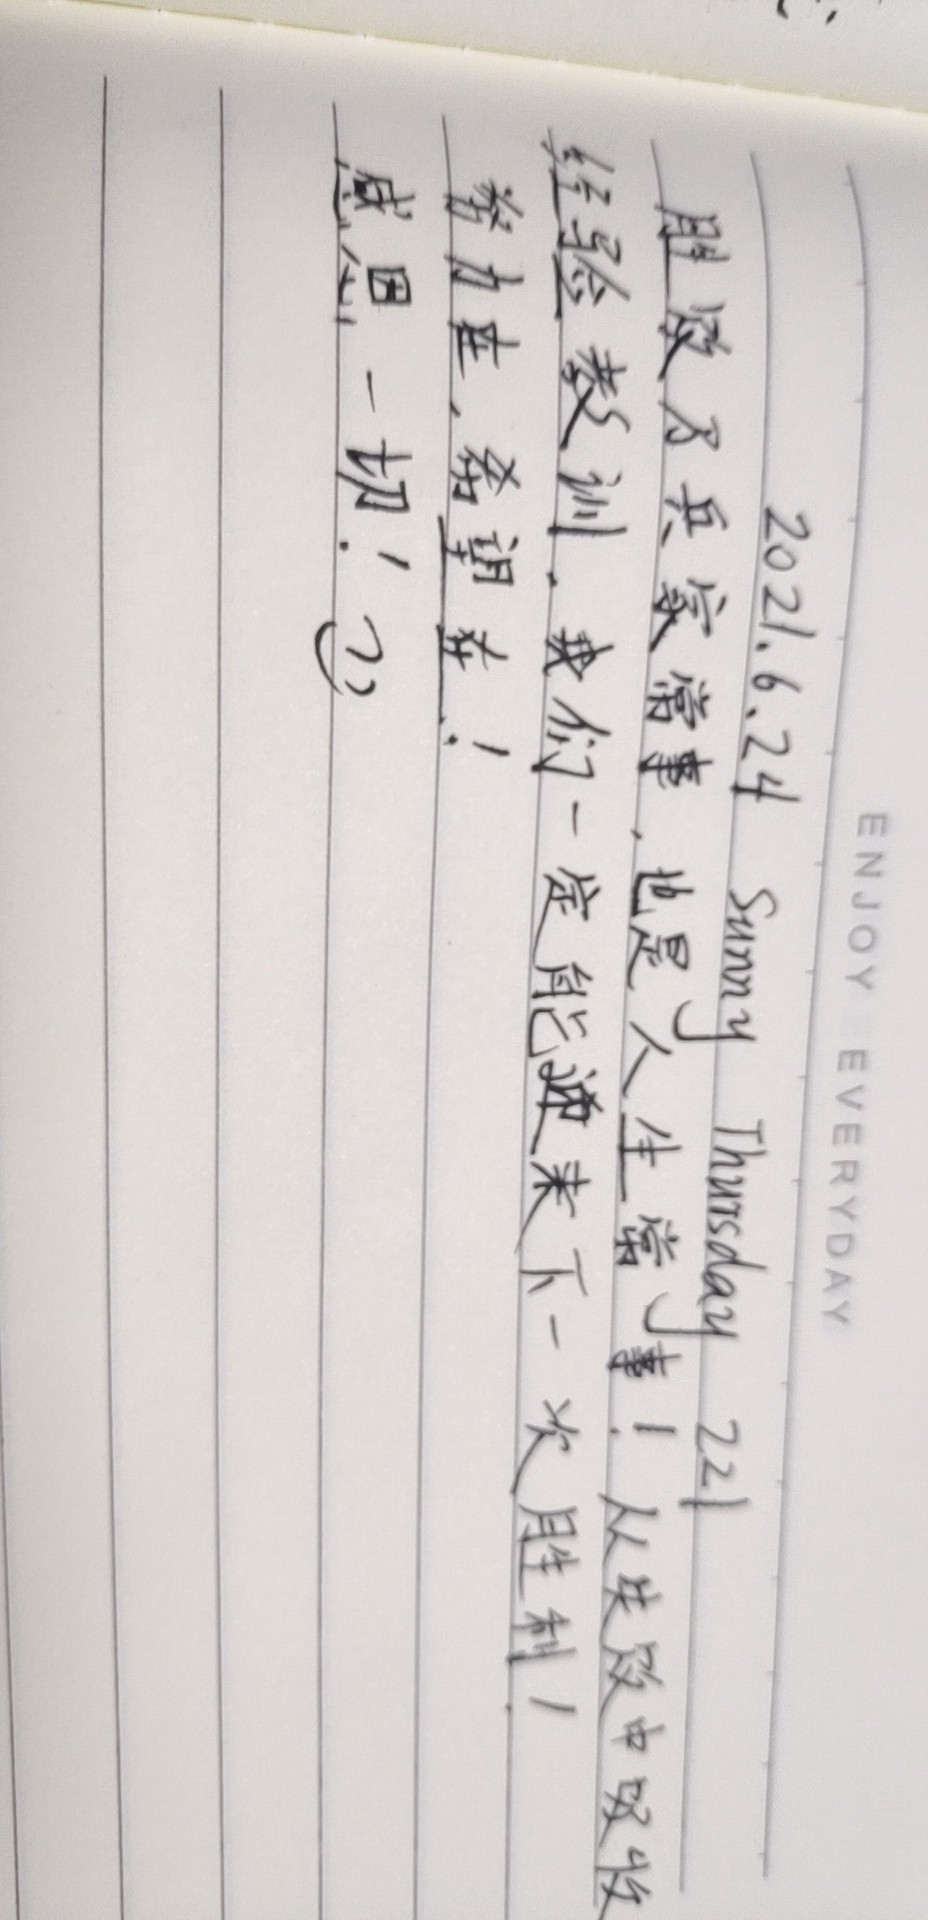 ENJOY EVERYDAY
2021.6.24 Sunny Thursday 221
胜败乃兵家常事，也是人生常事！从失败中吸收
经验教训。我们一定能迎来下一次胜利！
努力在，希望在！
感恩一切！